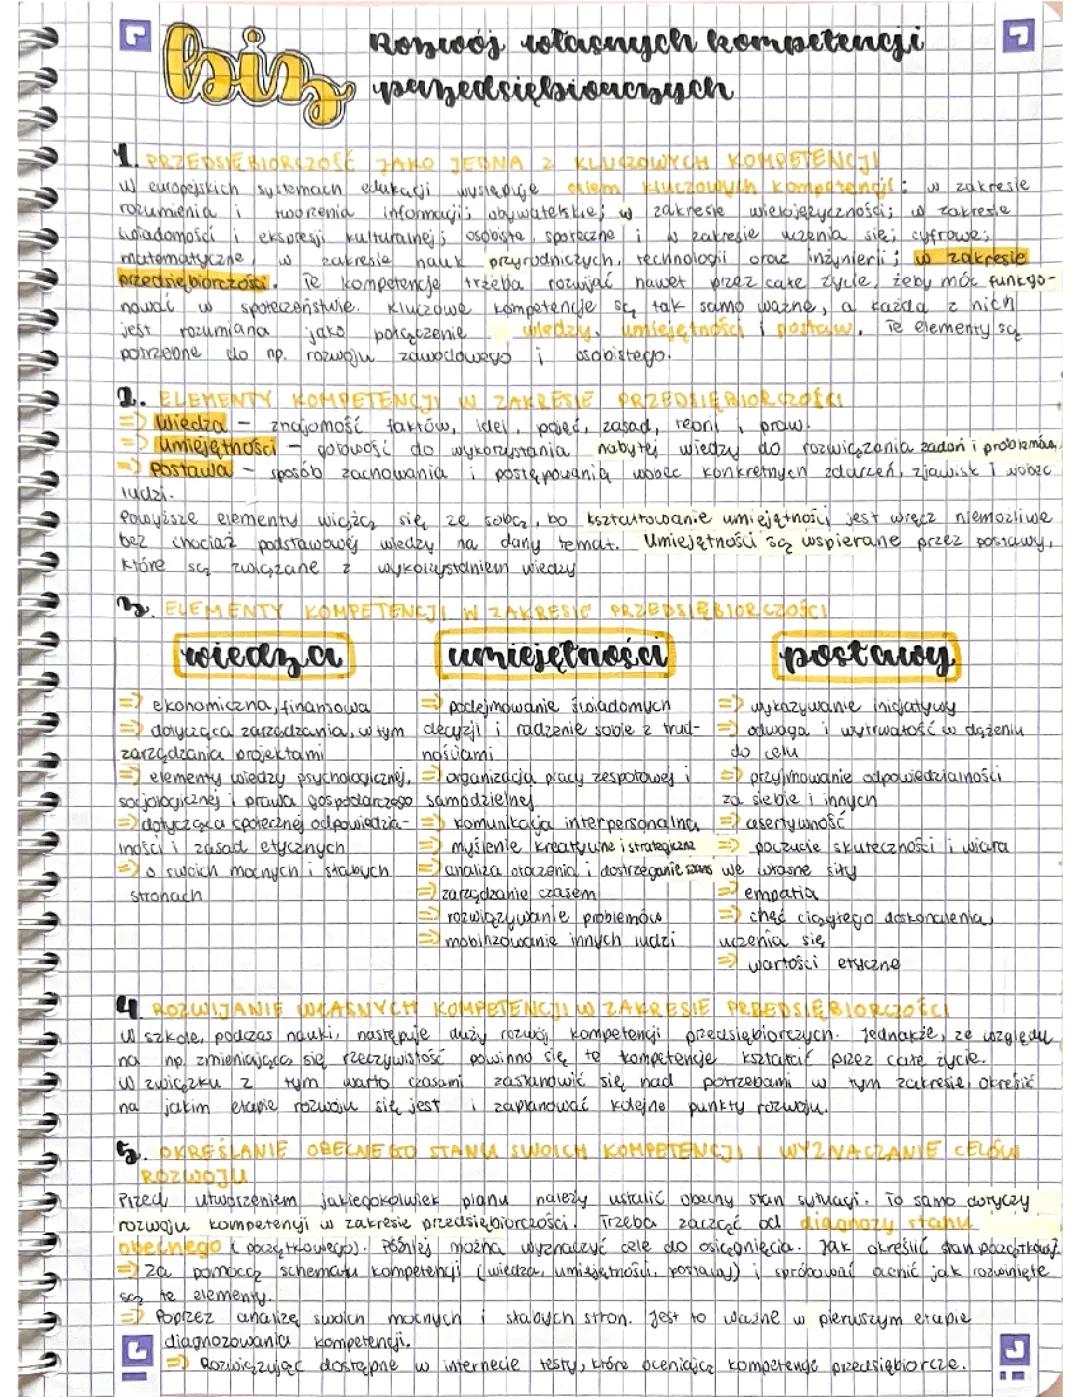 biz
Rozwój własnych kompetencji
przedsiębiorczych
1. PRZEDSIĘBIORCZOŚĆ JAKO JEDNA Z KLUCZOWYCH KOMPETENCJI
W europejskich systemach edukacji występuje osiem kluczowych kompetencji: w zakresie
rozumienia i tworzenia informacji; obywatelskie; w zakresie wielojęzyczności; w zakresie
świadomości i ekspresji kulturalnej; osobiste, społeczne i w zakresie uczenia się; cyfrowe;
matematyczne, w zakresie nauk przyrodniczych, technologii oraz inżynierii; w zakresie
przedsiębiorczości. Te kompetencje trzeba rozwijać nawet przez całe życie, żeby móc funkcjo-
nować w społeczeństwie. Kluczowe kompetencje są tak samo ważne, a każda z nich
jest rozumiana jako połączenie wiedzy, umiejętności i postaw. Te elementy są
potrzebne do np. rozwoju zawodowego i osobistego.
2. ELEMENTY KOMPETENCJI W ZAKRESIE PRZEDSIĘBIORCZOŚCI
=> Wiedza - znajomość faktów, idei, pojęć, zasad, teorii i praw.
=> Umiejętności - gotowość do wykorzystania nabytej wiedzy do rozwiązania zadań i problemów.
=> Postawa - sposób zachowania i postępowania wobec konkretnych zdarzeń, zjawisk i wobec
ludzi.
Powyższe elementy wiążą się ze sobą, bo kształtowanie umiejętności jest wręcz niemożliwe
bez chociaż podstawowej wiedzy na dany temat. Umiejętności są wspierane przez postawy,
które są związane z wykorzystaniem wiedzy
3. ELEMENTY KOMPETENCJI W ZAKRESIE PRZEDSIĘBIORCZOŚCI
wiedza
=> ekonomiczna, finansowa
=> dotycząca zarządzania, w tym
zarządzania projektami
=> elementy wiedzy psychologicznej,
socjologicznej i prawa gospodarczego
=> dotycząca społecznej odpowiedzia-
lności i zasad etycznych
=> o swoich mocnych i słabych
stronach
umiejętności
=> podejmowanie świadomych
decyzji i radzenie sobie z trud-
nościami
=> organizacja pracy zespołowej i
samodzielnej
=> komunikacja interpersonalna
=> myślenie kreatywne i strategiczne
=> analiza otoczenia i dostrzeganie szans
=> zarządzanie czasem
=> rozwiązywanie problemów
=> mobilizowanie innych ludzi
postawy
=> wykazywanie inicjatywy
=> odwaga i wytrwałość w dążeniu
do celu
=> przyjmowanie odpowiedzialności
za siebie i innych
=> asertywność
=> poczucie skuteczności i wiara
we własne siły
=> empatia
=> chęć ciągłego doskonalenia,
uczenia się
=> wartości etyczne
4. ROZWIJANIE WŁASNYCH KOMPETENCJI W ZAKRESIE PRZEDSIĘBIORCZOŚCI
W szkole, podczas nauki, następuje duży rozwój kompetencji przedsiębiorczych. Jednakże, ze względu
na np. zmieniającą się rzeczywistość powinno się te kompetencje kształcić przez całe życie.
W związku z tym warto czasami zastanowić się nad potrzebami w tym zakresie, określić
na jakim etapie rozwoju się jest i zaplanować kolejne punkty rozwoju.
5. OKREŚLANIE OBECNEGO STANU SWOICH KOMPETENCJI I WYZNACZANIE CELÓW
ROZWOJU
Przed utworzeniem jakiegokolwiek planu należy ustalić obecny stan sytuacji. To samo dotyczy
rozwoju kompetencji w zakresie przedsiębiorczości. Trzeba zacząć od diagnozy stanu
obecnego (początkowego). Później można wyznaczyć cele do osiągnięcia. Jak określić stan początkowy?
=> Za pomocą schematu kompetencji (wiedza, umiejętności, postawy) i spróbować ocenić jak rozwinięte
są te elementy.
=> Poprzez analizę swoich mocnych i słabych stron. Jest to ważne w pierwszym etapie
diagnozowania kompetencji.
=> Rozwiązując dostępne w internecie testy, które oceniają kompetencje przedsiębiorcze.